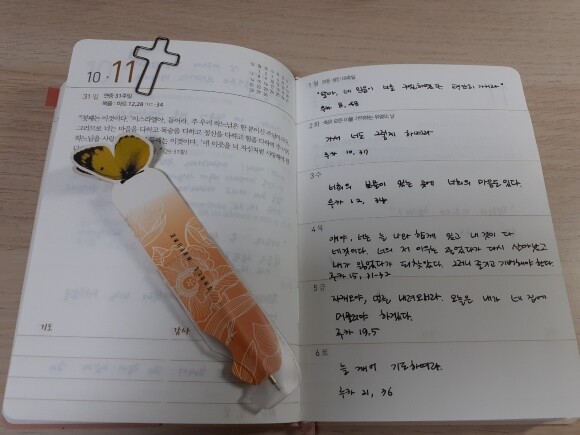 10 · 11
31 일 연중 31주일
복음: 마르 12,28ㄱㄷ-34
"첫째는 이것이다. '이스라엘아, 들어라. 주 우리 하느님은 한 분이신 주님이시다.
그러므로 너는 마음을 다하고 목숨을 다하고 정신을 다하고 힘을 다하여 주 너의
하느님을 사랑
는 이것이다. '네 이웃을 너 자신처럼 사랑해야 한
기도
감사
1 월 모든 성인 대축일
"딸아, 네 믿음이 너를 구원하였다. 평안히 가거라."
루카 8, 48
2 화
가서 너도 그렇게 하여라.
루카 10, 37
3 수
너희의 보물이 있는 곳에 너희의 마음도 있다.
루카 12, 34
4 목
얘야, 너는 늘 나와 함께 있고 내 것이 다
네것이다. 너의 저 아우는 죽었다가 다시 살아났고
내가 잃었다가 되찾았다. 그러니 즐기고 기뻐해야 한다.
루카 15, 31-32
5 금
자캐오야, 얼른 내려오너라. 오늘은 내가 네 집에
머물러야 하겠다.
루카 19.5
6 토
늘 깨어 기도하여라.
루카 21, 36